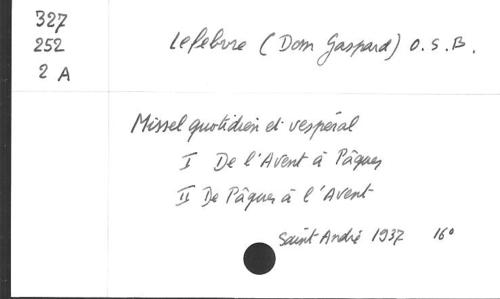 327
252
2 A
Lefebvre (Dom Gaspard) O.S.B.
Missel quotidien et vespéral
I De l'Avent à Pâques
II De Pâques à l'Avent
Saint André 1937 16°